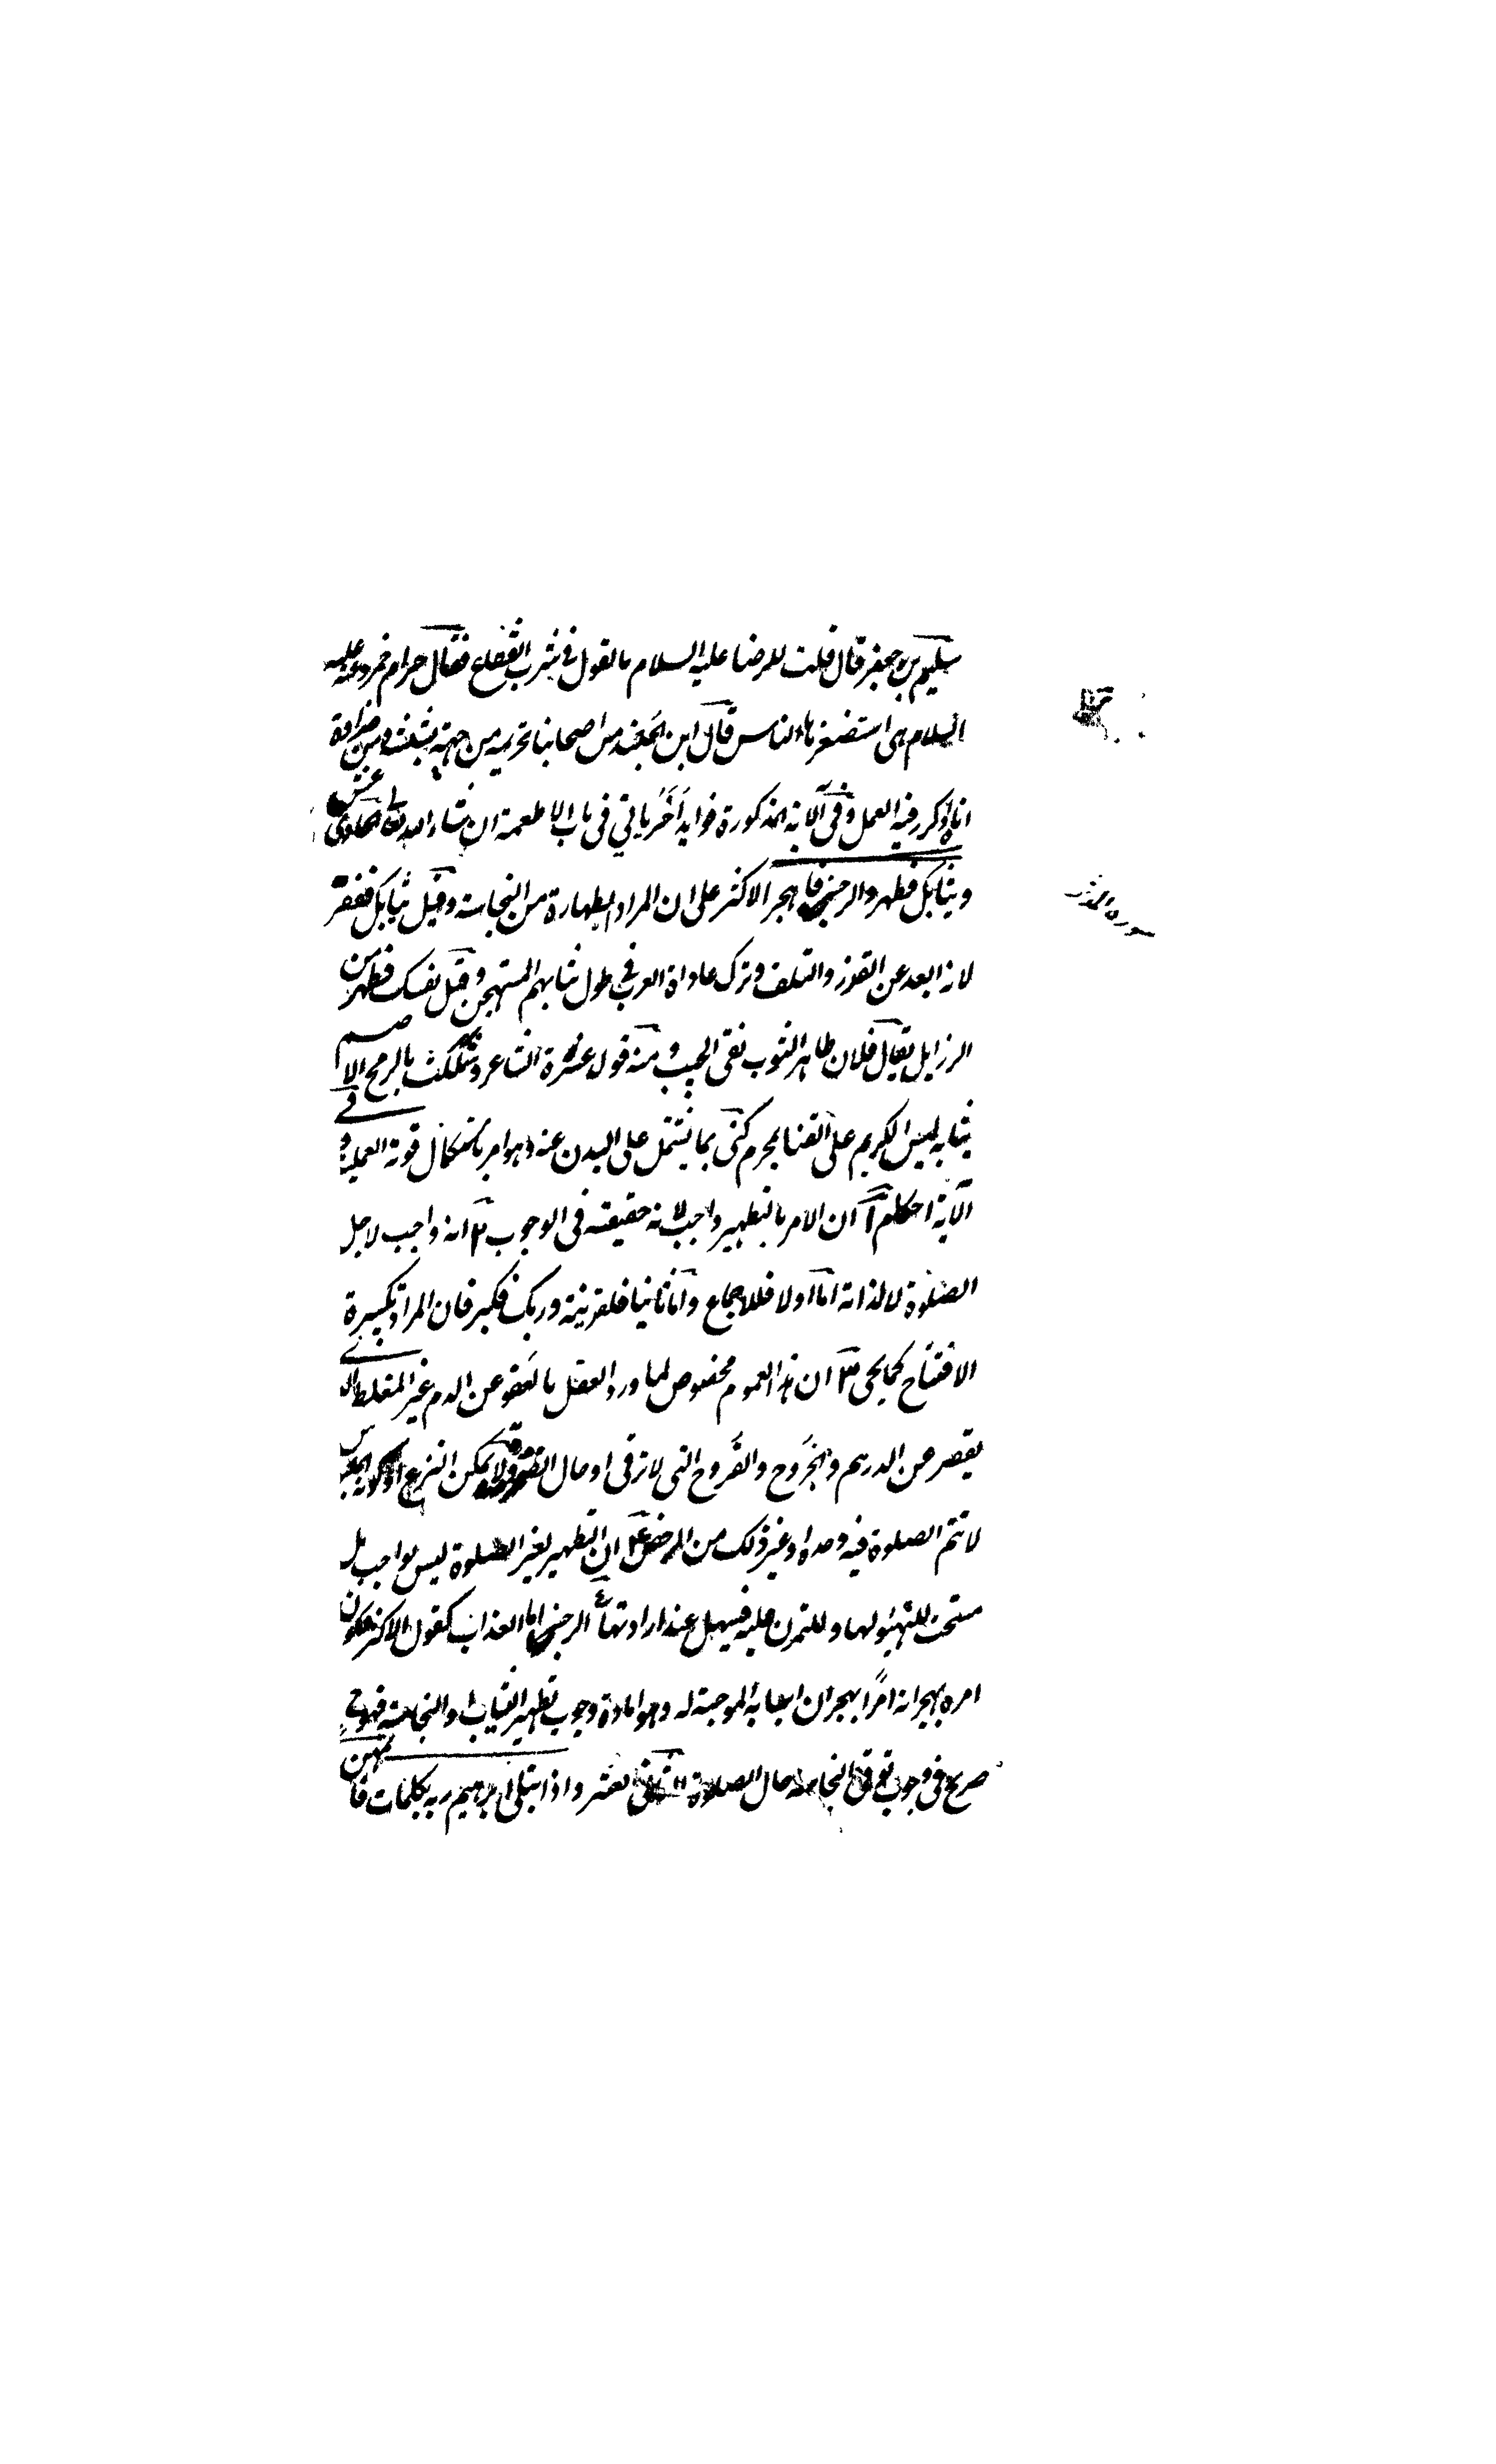 سليم بن جعفر قال قلت للرضا عليه السلام ما تقول في شرب الفقاع فقال حرام خمر وعنه عليه
السلام هي خمرة استصغرها الناس قال ابن الجنيد من اصحابنا تحريمه من جهة نشيشه ومن ضراوة
انائه اذا كرر فيه العمل وفي الآية المذكورة فوايد أخر يأتي في باب الاطعمة ان شاء الله تعالى الحادي عشر
وثيابك فطهر والرجز فاهجر الاكثر على ان المراد الطهارة من النجاسة وقيل ثيابك فقصر
لانه ابعد عن القذر والتلف وترك عادات العرب في طول ثيابهم المستهجن وقيل نفسك فطهر من
الرزايل يقال فلان طاهر الثوب نقى الجيب ومنه قول عنترة الشاعر وشككت بالرمح الاصم
ثيابه ليس الكريم على القنا بمحرم كنى بما يشتمل على البدن عنه وهو امر باستكمال قوته العملية وفي
الآية احكام آ ان الامر بالتطهير واجب لانه حقيقته في الوجوب ٢ انه واجب لاجل
الصلوة لا لذاته اما اولا فللاجماع واما ثانيا فلقرينة وربك فكبر فان المراد تكبيرة
الافتتاح كما يجئ ٣ ان هذا العموم مخصوص لما ورد النقل بالعفو عن الدم غير المغلظ الذي
يقصر عن الدرهم والجروح والقروح التي لا ترقى او حال الضرورة ولا يمكن النزع او كونه ملبس
لا تتم الصلوة فيه وحده او غير ذلك من الرخص ٤ ان التطهير لغير الصلوة ليس بواجب بل
مستحب للتهيئو لها وللتمرن عليه فيسهل عند ارادتها ء الرجز اما العذاب كقول الاكثر فيكون
امره بهجرانه امرًا بهجران اسبابه الموجبة له وهو امادة وجوب تطهير الثياب او النجاسة فهو ح
صريح في وجوب توقي النجاسة حال الصلوة الثاني عشر واذ ابتلى ابرهيم ربه بكلمات فاتمهن
سورة المدثر